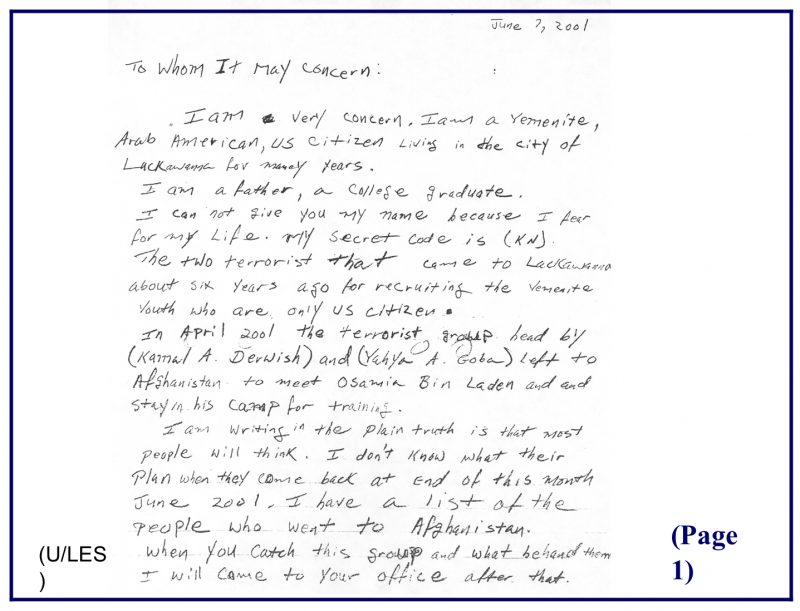 June 7, 2001
To Whom It May Concern:
I am a very concern. I am a Yemenite,
Arab American, US Citizen Living in the city of
Lackawanna for maney years.
I am a father, a College graduate.
I can not give you my name because I fear
for my Life. My Secret Code is (KN).
The two terrorist that came to Lackawanna
about six years ago for recruiting the Yemenite
Youth who are only US citizen.
In April 2001 the terrorist group head by
(Kamal A. Derwish) and (Yahya A. Goba) Left to
Afghanistan to meet Osamia Bin Laden and and
stay in his Camp for training.
I am writing in the plain truth is that most
people will think. I don't know what their
Plan when they come back at end of this month
June 2001. I have a list of the
people who went to Afghanistan.
When you catch this group and what behand them
I will come to your office after that.
(U/LES
)
(Page
1)